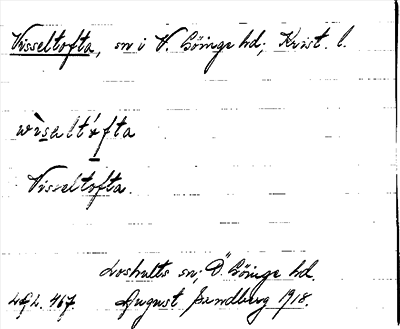 Visseltofta, sn i V. Göinge hd; Krist. l.
Visseltofta.
Loshults sn; Ö. Göinge hd.
467. August Sundberg 1918.